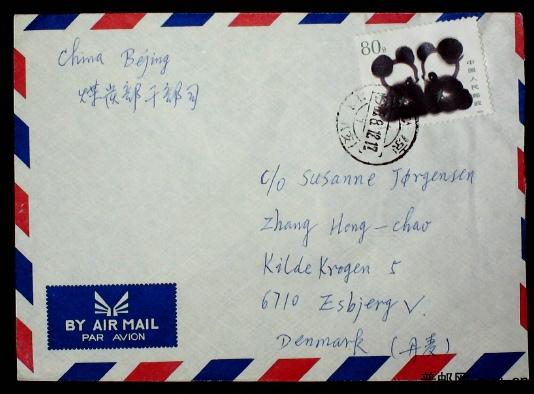 China Bejing
煤炭部干部司
80分
中国人民邮政
c/o Susanne Jørgensen
Zhang Hong-chao
Kilde Krogen 5
6710 Esbjerg V.
Denmark (丹麦)
BY AIR MAIL
PAR AVION